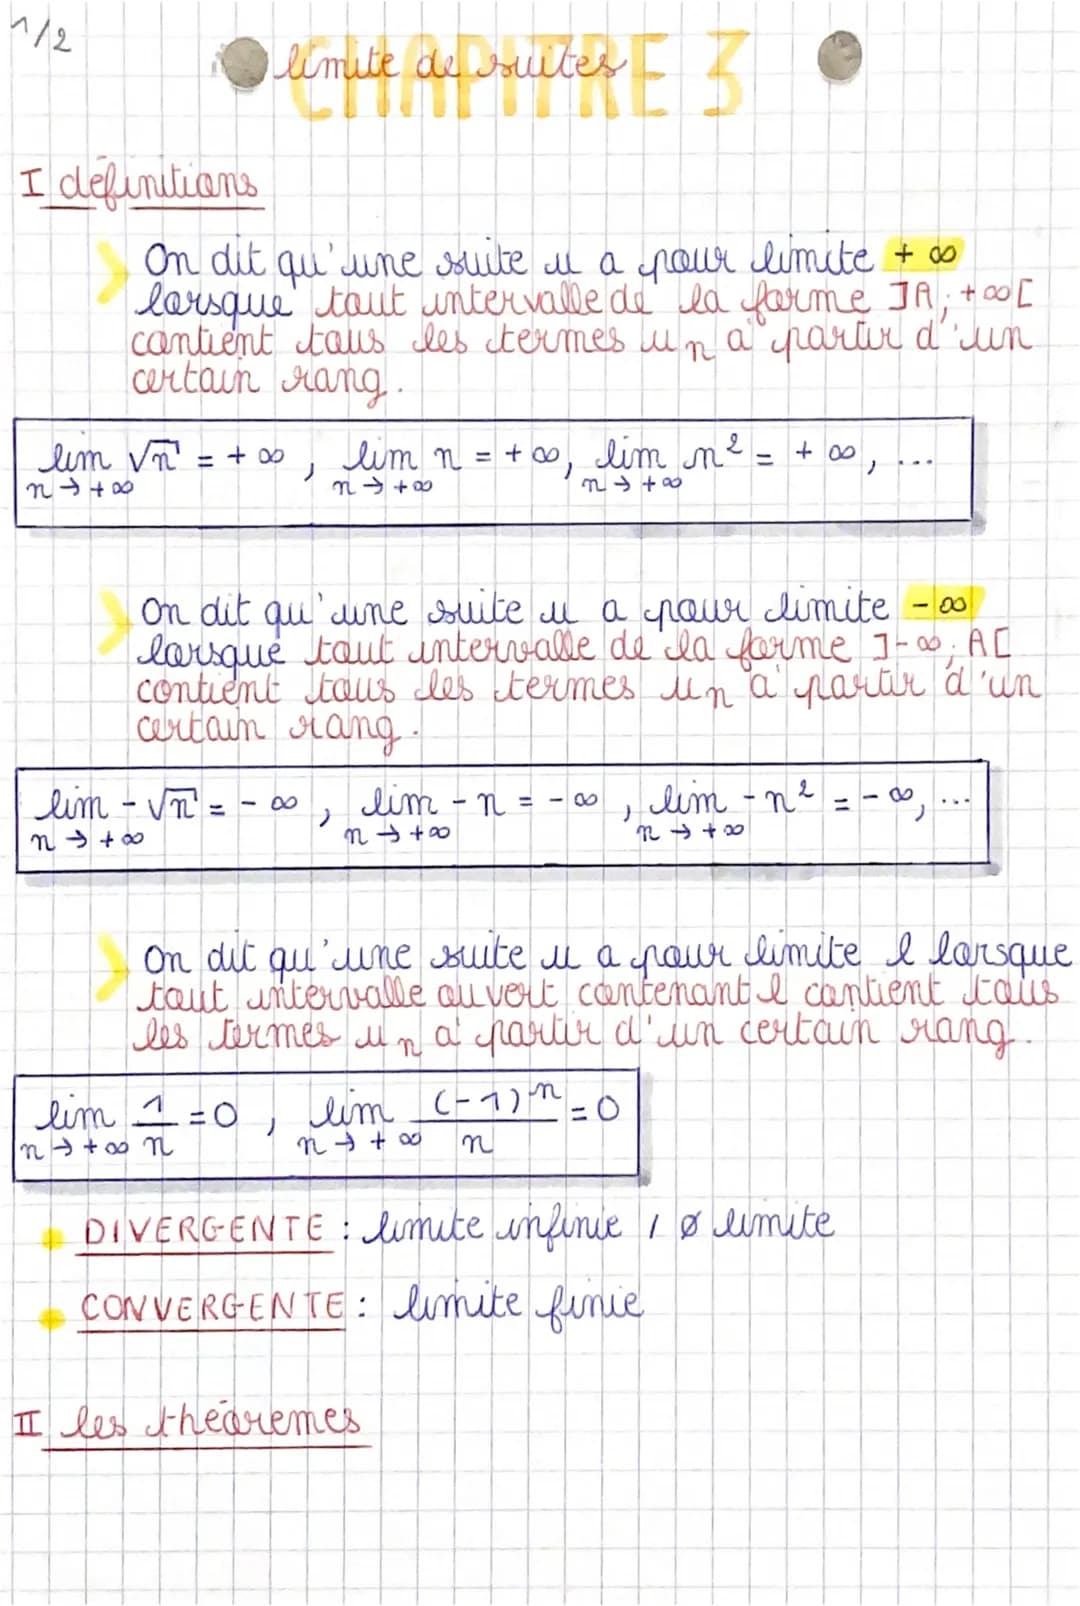 1/2
CHAPITRE 3
limite de suites
I définitions
On dit qu'une suite u a pour limite + ∞
lorsque tout intervalle de la forme ]A; +∞[
contient tous les termes un à partir d'un
certain rang.
lim √n = + ∞, lim n = + ∞, lim n² = + ∞, ...
n → +∞ n → +∞ n → +∞
On dit qu'une suite u a pour limite - ∞
lorsque tout intervalle de la forme ]-∞; A[
contient tous les termes un à partir d'un
certain rang.
lim - √n = - ∞, lim - n = - ∞, lim - n² = - ∞, ...
n → +∞ n → +∞ n → +∞
On dit qu'une suite u a pour limite l lorsque
tout intervalle ouvert contenant l contient tous
les termes un à partir d'un certain rang.
lim 1/n = 0, lim (-1)ⁿ/n = 0
n → +∞ n → +∞
DIVERGENTE : limite infinie / ø limite
CONVERGENTE : limite finie
II les théoremes